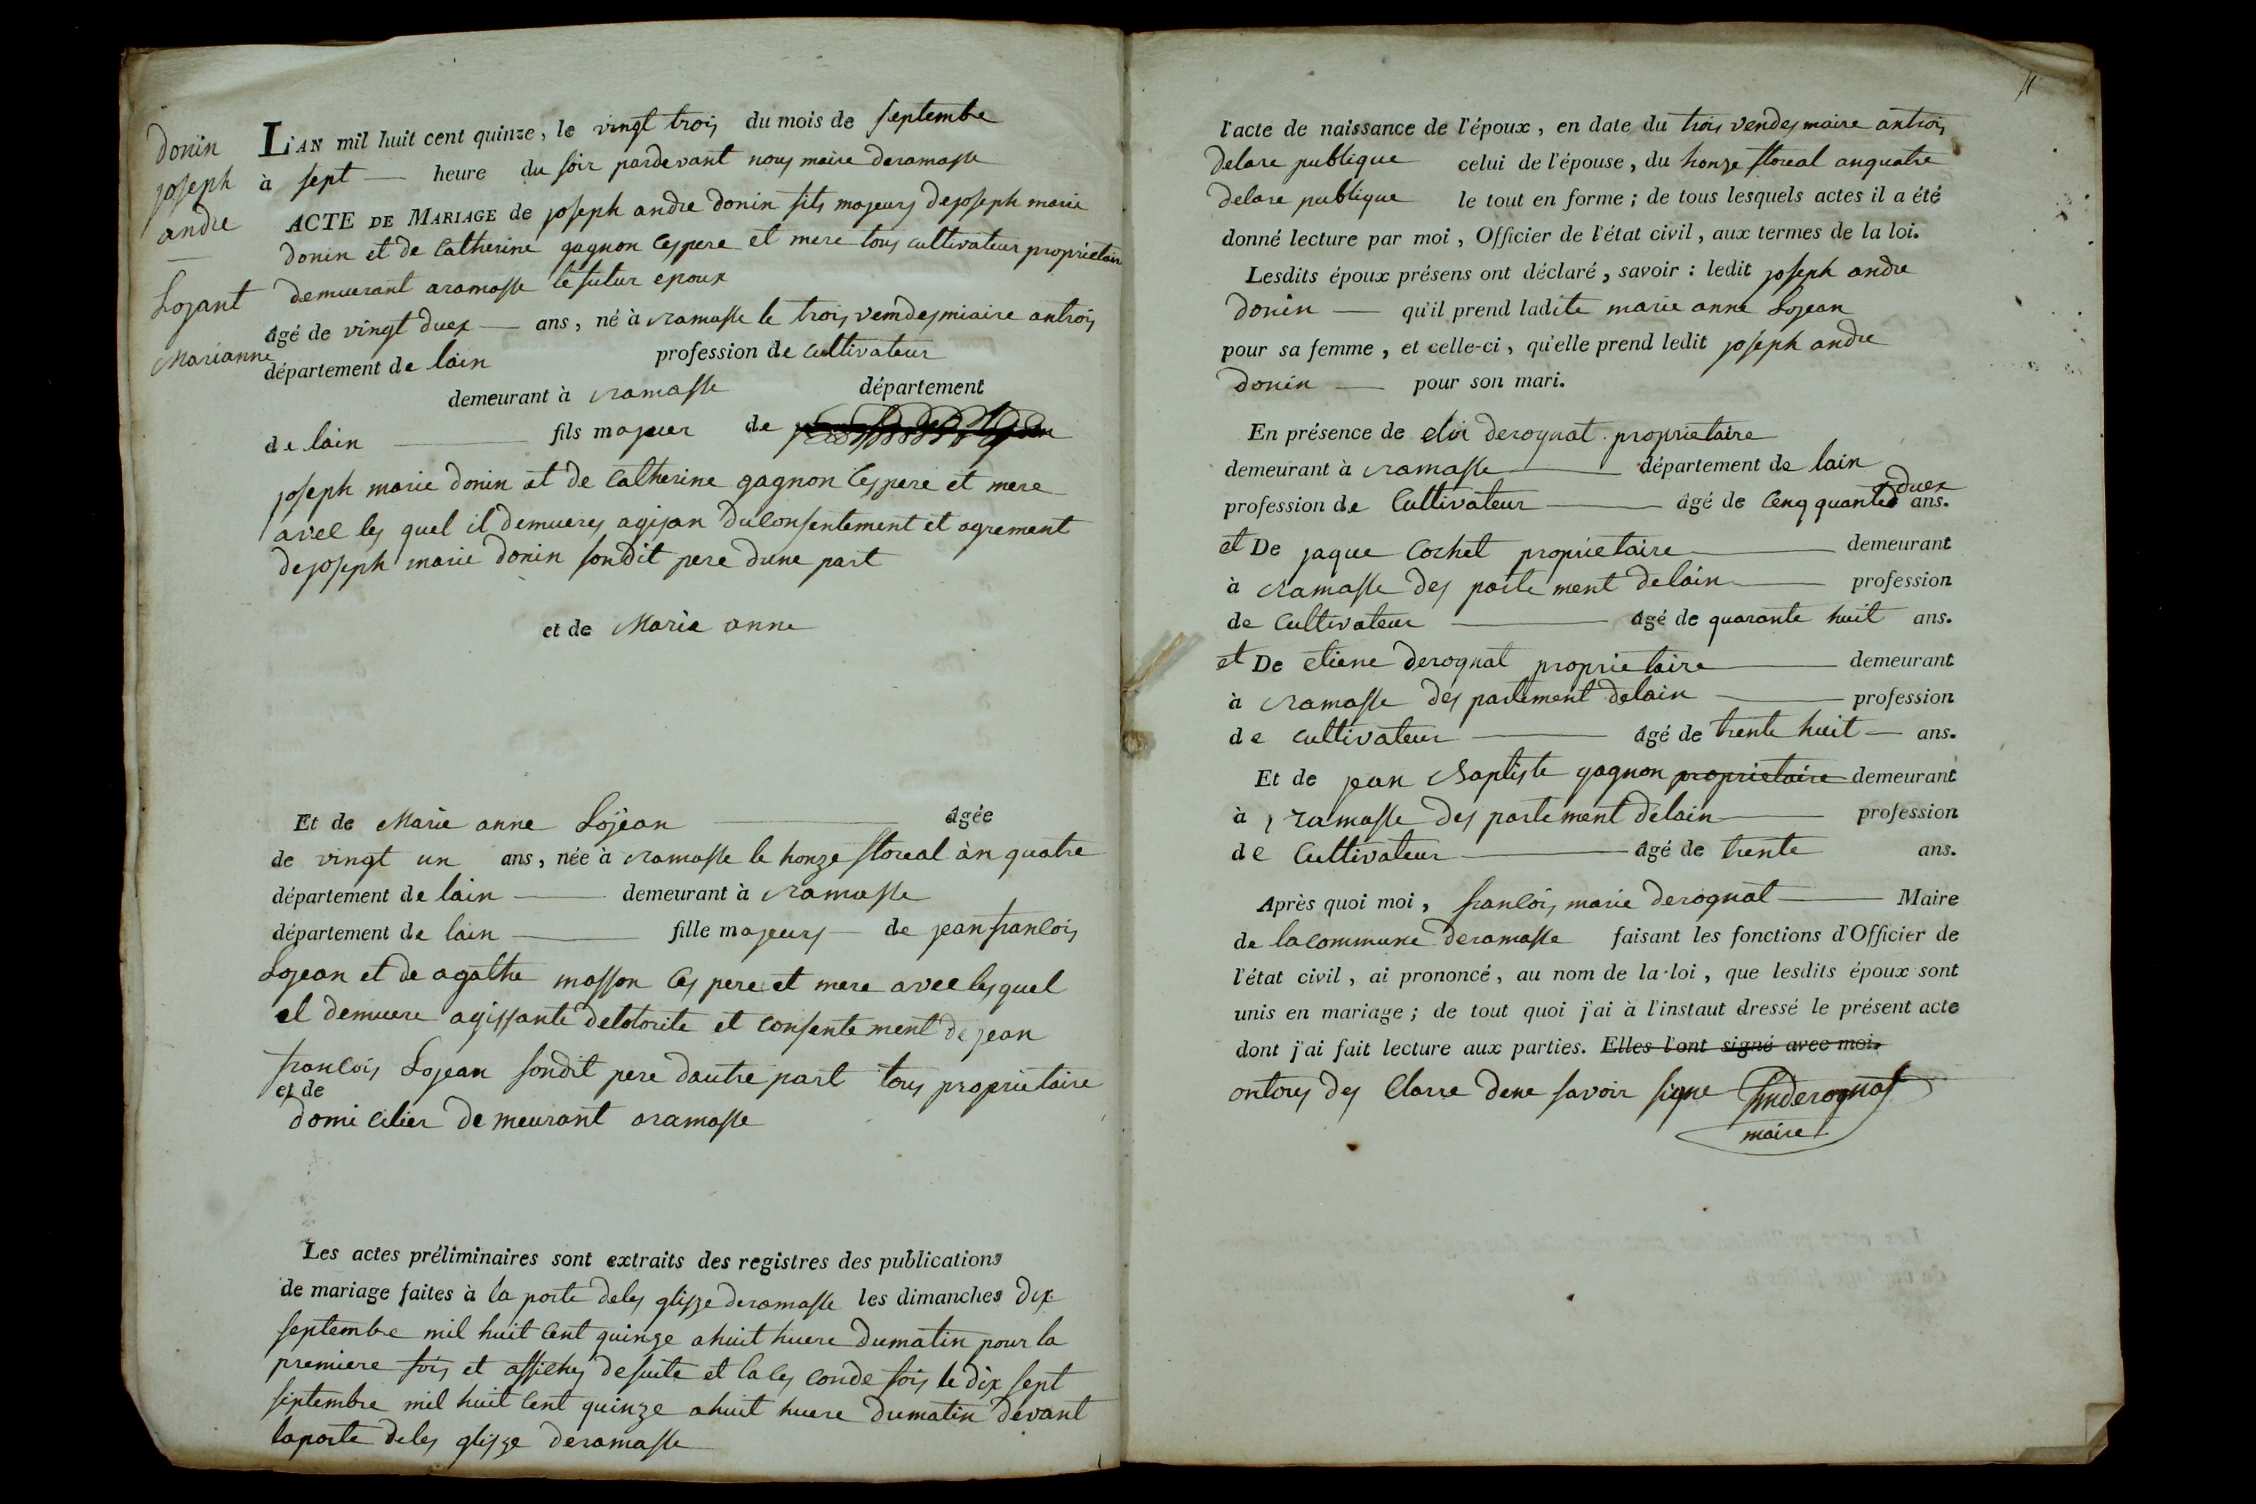 donin
joseph
andre
—
Lojant
Marianne
L'AN mil huit cent quinze, le vingt trois du mois de septembre
à sept — heure du soir pardevant nous maire deramasse
ACTE DE MARIAGE de joseph andre donin fils majeurs dejoseph marie
donin et de Catherine gagnon Ces pere et mere tous cultivateur proprietair
demuerant aramasse le futur epoux
âgé de vingt duex — ans, né à ramasse le trois vemdesmiaire antrois
département de lain profession de cultivateur
demeurant à ramasse département
de lain — fils majeur de
joseph marie donin et de Catherine gagnon Ces pere et mere
avec les quel il demueres agisan du Consentement et agrement
de joseph marie donin sondit pere dune part
et de Marie anne
Et de Marie anne Lojean — âgée
de vingt un ans, née à ramasse le honze floreal àn quatre
département de lain — demeurant à ramasse
département de lain — fille majeurs — de jean francois
Lojean et de agathe masson Ces pere et mere avec lesquel
el demuere agissante delotorite et consentement de jean
francois Lojean sondit pere dautre part tous proprietaire
et de
domicilier demeurant aramasse
Les actes préliminaires sont extraits des registres des publications
de mariage faites à la porte deles glisze deramasse les dimanches dix
septembre mil huit Cent quinze ahuit huere dumatin pour la
premiere fois et affiches desuite et la ces conde fois le dix sept
septembre mil huit Cent quinze ahuit huere dumatin devant
laporte deles glisze deramasse
11
l'acte de naissance de l'époux, en date du trois vendesmaire antrois
delare publique celui de l'épouse, du honze floreal anquatre
delare publique le tout en forme; de tous lesquels actes il a été
donné lecture par moi, Officier de l'état civil, aux termes de la loi.
Lesdits époux présens ont déclaré, savoir : ledit joseph andre
donin — qu'il prend ladite marie anne Lojean
pour sa femme, et celle-ci, qu'elle prend ledit joseph andre
donin — pour son mari.
En présence de eloi derognat proprietaire
demeurant à ramasse — département de lain
duex
profession de Cultivateur — âgé de Cenq quante ans.
et De jaque Cochet proprietaire — demeurant
à ramasse des parte ment delain — profession
de Cultivateur — âgé de quarante huit ans.
et De etiene derognat proprietaire — demeurant
à ramasse des partement delain — profession
de cultivateur — âgé de trente huit — ans.
Et de jean Baptiste gagnon proprietaire demeurant
à ramasse des partement delain — profession
de Cultivateur — âgé de trente ans.
Après quoi moi, francois marie derognat — Maire
de lacommune deramasse faisant les fonctions d'Officier de
l'état civil, ai prononcé, au nom de la loi, que lesdits époux sont
unis en mariage; de tout quoi j'ai à l'instaut dressé le présent acte
dont j'ai fait lecture aux parties. Elles l'ont signé avec moi.
ontous des Clarre dene savoir signe fmderognat
maire